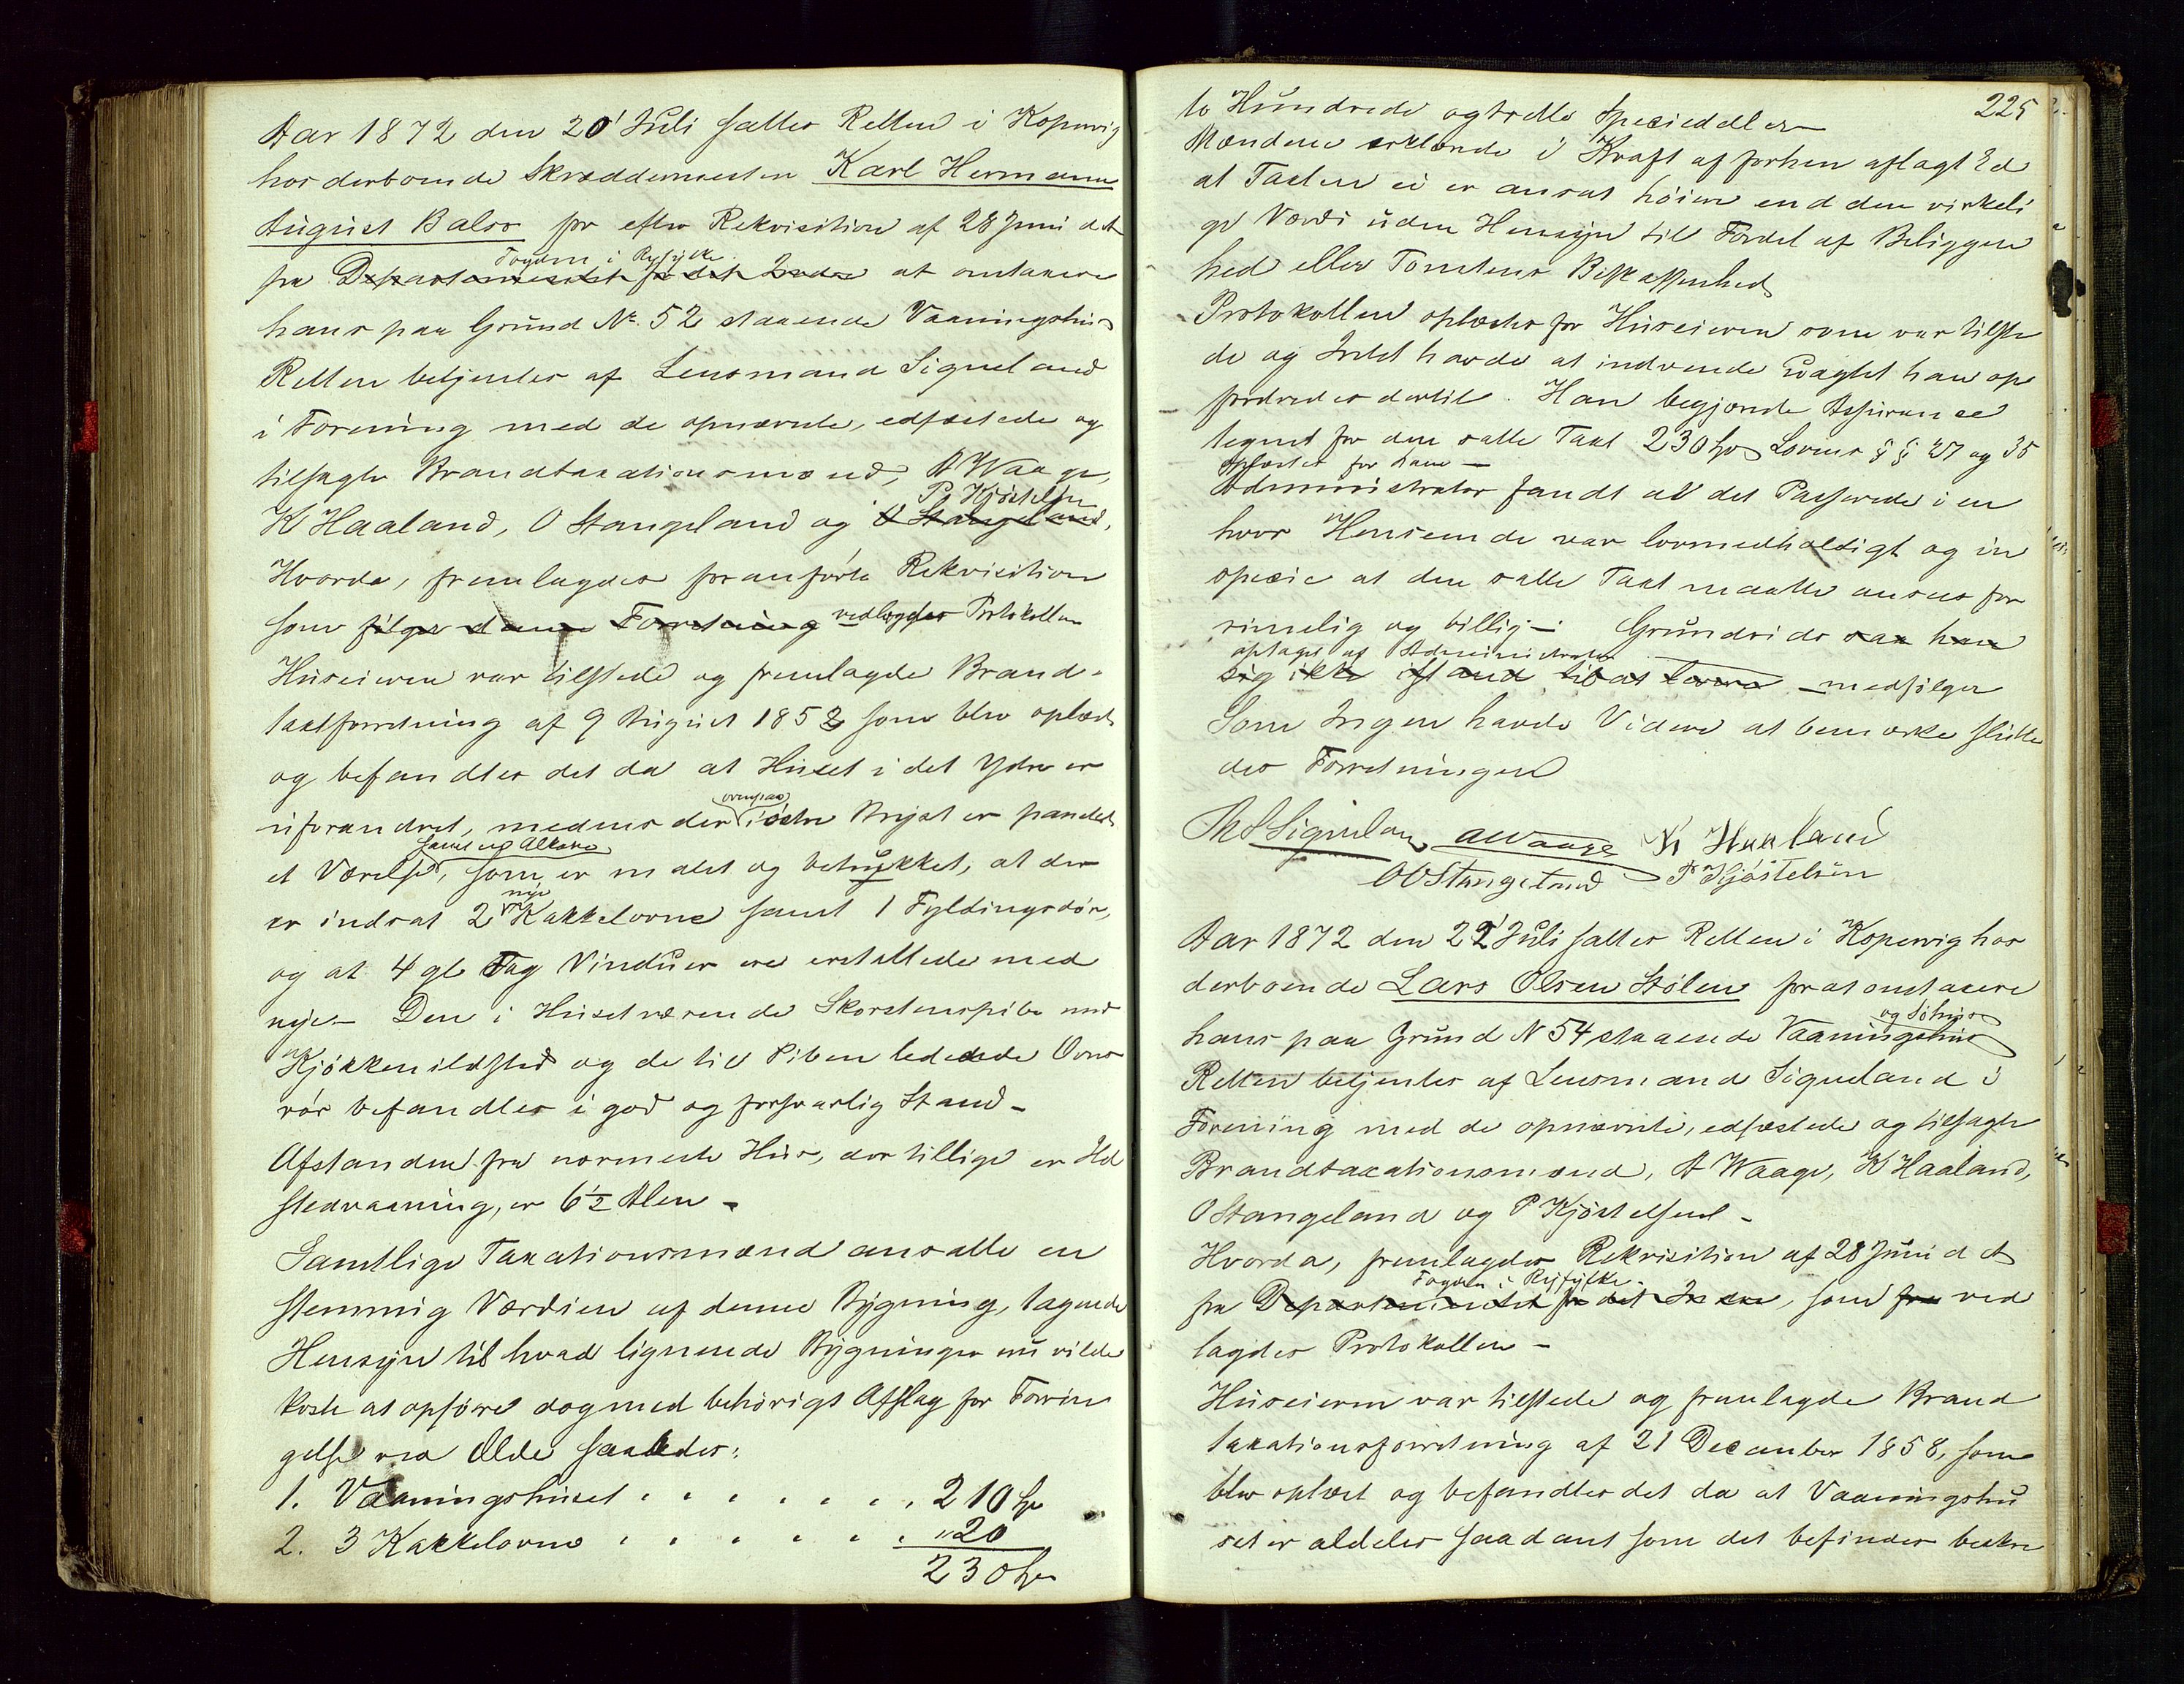 Aar 1872 den 20' Juli sattes Retten i Kopervig
hos derboende Skræddermester Karl Hermann
August Balss for efter Rekvisition af 28 Juni d.A
Fogden i Ryfylke
fra Departementet for det Indre at omtaxere
hans paa Grund No 52 staaende Vaaningshus
Retten betjentes af Lensmand Sigueland
i Forening med de opnævnte, edfæstede og
tilsagte Brandtaxationsmænd, A Waage,
P. Kjøstelsen
K Haaland, O Stangeland og O Stangeland.
Hvorda, fremlagdes foranførte Rekvisition
som følger denne Forretning vedlægges Protokollen
Huseieren var tilstede og fremlagde Brand-
taxtforretning af 9 August 1852 som blev oplæst
og befandtes det da at Huset i det Ydre er
ovenpaa
uforandret, medens der i østre Bryst er pandlet
samt en Alkove
et Værelse, som er malet og betrukket, at der
nye
er indsat 2 Kakkelovne samt 1 Fyldingsdør,
og at 4 gl Fag Vinduer ere erstattede med
nye. – Den i Huset værende Skorstenspibe med
Kjøkkenildsted og de til Piben ledende Ovns
rør befandtes i god og forsvarlig Stand –
Afstanden fra nærmeste Hus, der tillige er Ild
stedvaaning, er 6½ Alen –
Samtlige Taxationsmænd ansatte en
stemmig Værdien af denne Bygning, tagende
Hensyn til hvad lignende Bygninger nu vilde
koste at opføre dog med behørigt Afslag for Forrin
gelse ved Ælde saaledes:
1. Vaaningshuset . . . . . . . 210 Spd
2. 3 Kakkelovne . . . . . . " 20
230 Spd
225
to Hundrede og tretti Speciedaler
Mændene erklærede i Kraft af forhen aflagt Ed
at Taxten ei er ansat høiere end den virkeli
ge Værdi uden Hensyn til Fordel af Beliggen
hed eller Tomtens Beskaffenhed
Protokollen oplæstes for Huseieren som var tilste
de og Intet havde at indvende uagtet han op
fordredes dertil. Han begjærede Assurance
tegnet for den satte Taxt 230 Spd Lovens §§ 27 og 35
oplæstes for ham –
Administrator fandt at det Passerede i en
hver Henseende var lovmedholdigt og in
specie at den satte Taxt maatte ansees for
rimelig og billig – Grundrids saa han
optaget af Administrator
sig ikke istand til at levere – medfølger
Som Ingen havde Videre at bemærke slutte
des Forretningen
A Waage K Haaland
O O Stangeland P Kjøstelsen
Aar 1872 den 22' Juli sattes Retten i Kopervig hos
derboende Lars Olsen Stølen for at omtaxere
og Søhus
hans paa Grund N 54 staaende Vaaningshus
Retten betjentes af Lensmand Sigueland i
Forening med de opnævnte, edfæstede og tilsagte
Brandtaxationsmænd, A Waage, K Haaland,
O Stangeland og P Kjøstelsen –
Hvorda, fremlagdes Rekvisition af 28 Juni d A
Fogden i Ryfylke
fra Departementet for det Indre, som fra ved
lagdes Protokollen –
Huseieren var tilstede og fremlagde Brand
taxationsforretning af 21 December 1858, som
blev oplæst og befandtes det da at Vaaningshu
set er aldeles saadant som det befindes beskre